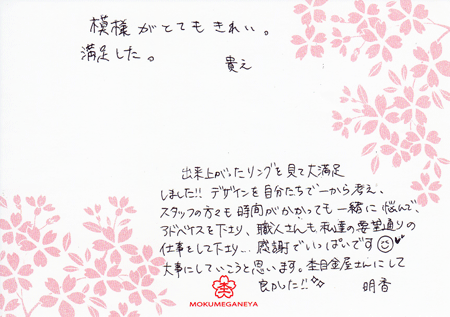 模様がとてもきれい。
満足した。
貴え
出来上がったリングを見て大満足
しました!! デザインを自分たちで一から考え、
スタッフの方々も時間がかかっても一緒に悩んで、
アドバイスを下さり、職人さんも私達の要望通りの
仕事をして下さり… 感謝でいっぱいです
大事にしていこうと思います。杢目金屋さんにして
良かった!!
明香
MOKUMEGANEYA